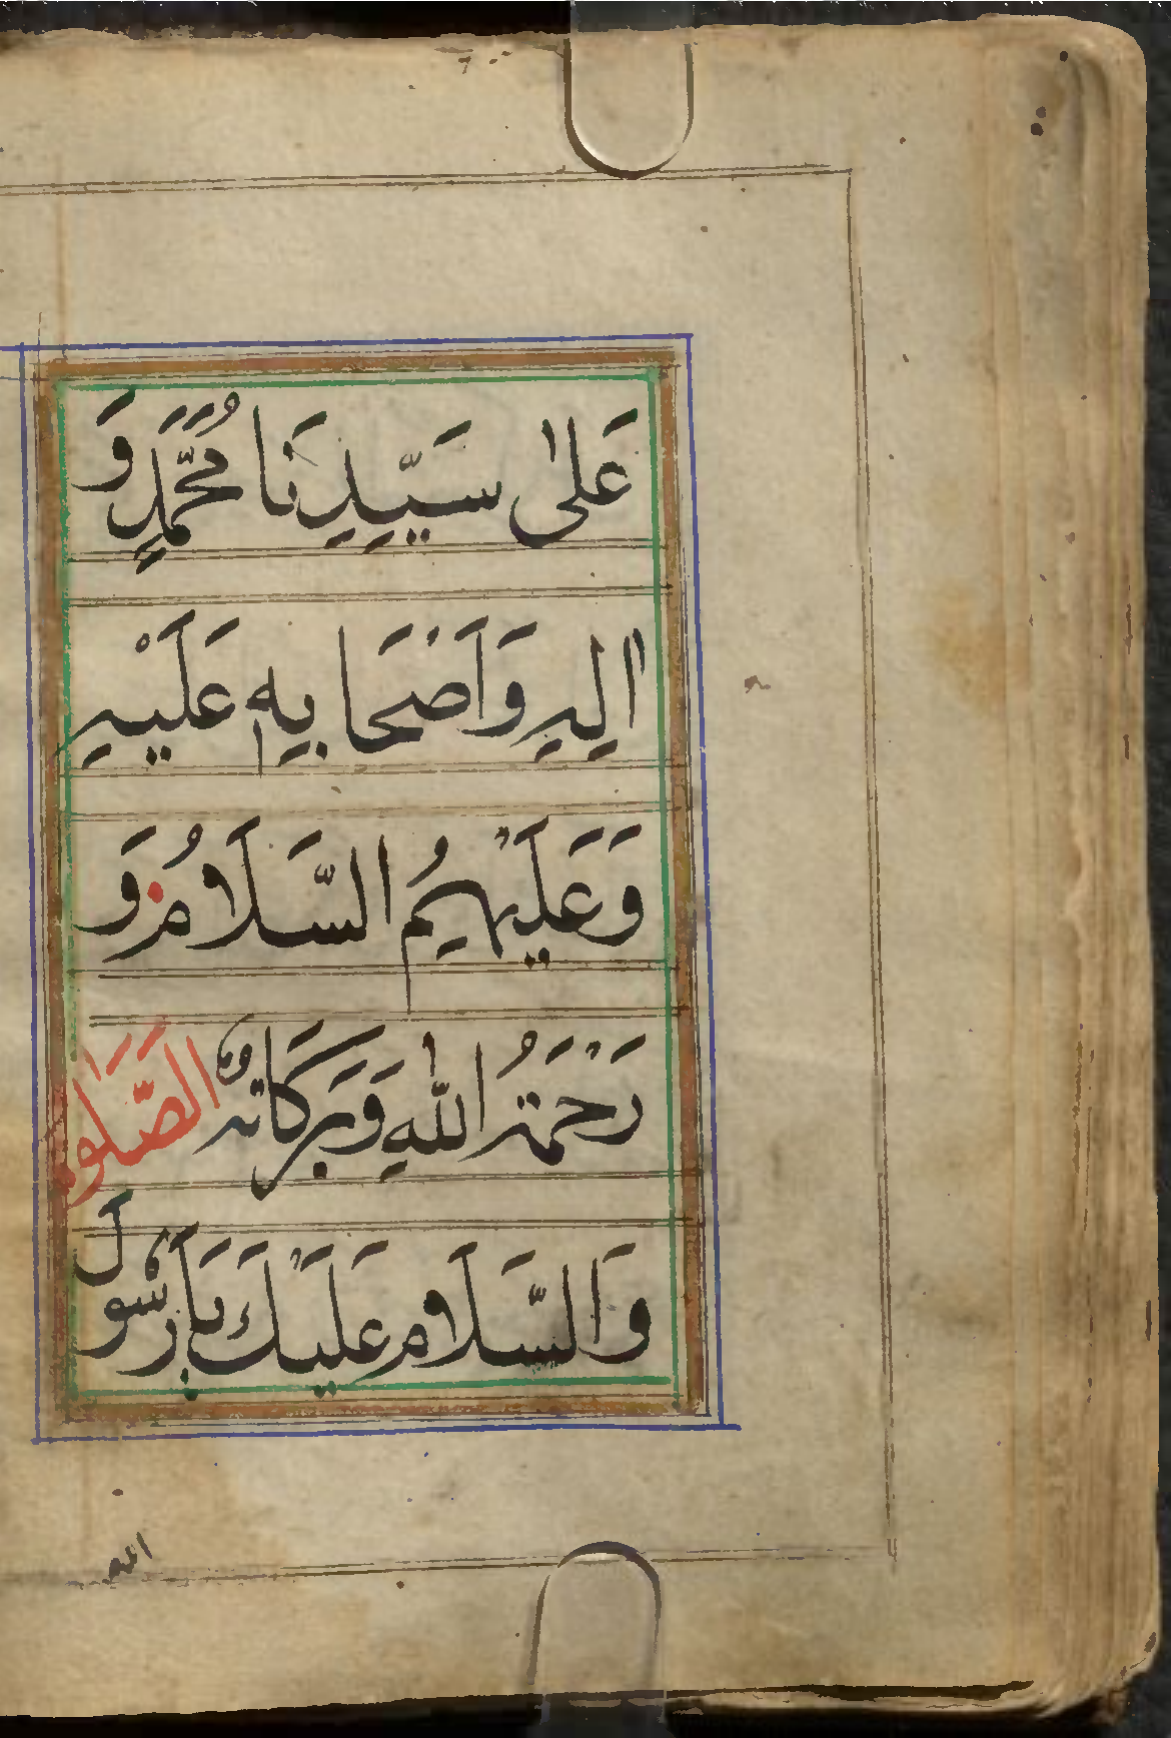 عَلىٰ سَيِّدِنَا مُحَمَّدٍ وَ
اٰلِهِ وَاَصْحَابِهِ عَلَيْهِ
وَعَلَيْهِمُ السَّلَامُ وَ
رَحْمَةُ اللّٰهِ وَبَرَكَاتُهُ الصَّلٰوة
وَالسَّلَام عَلَيْكَ يَارَسُولَ
الله